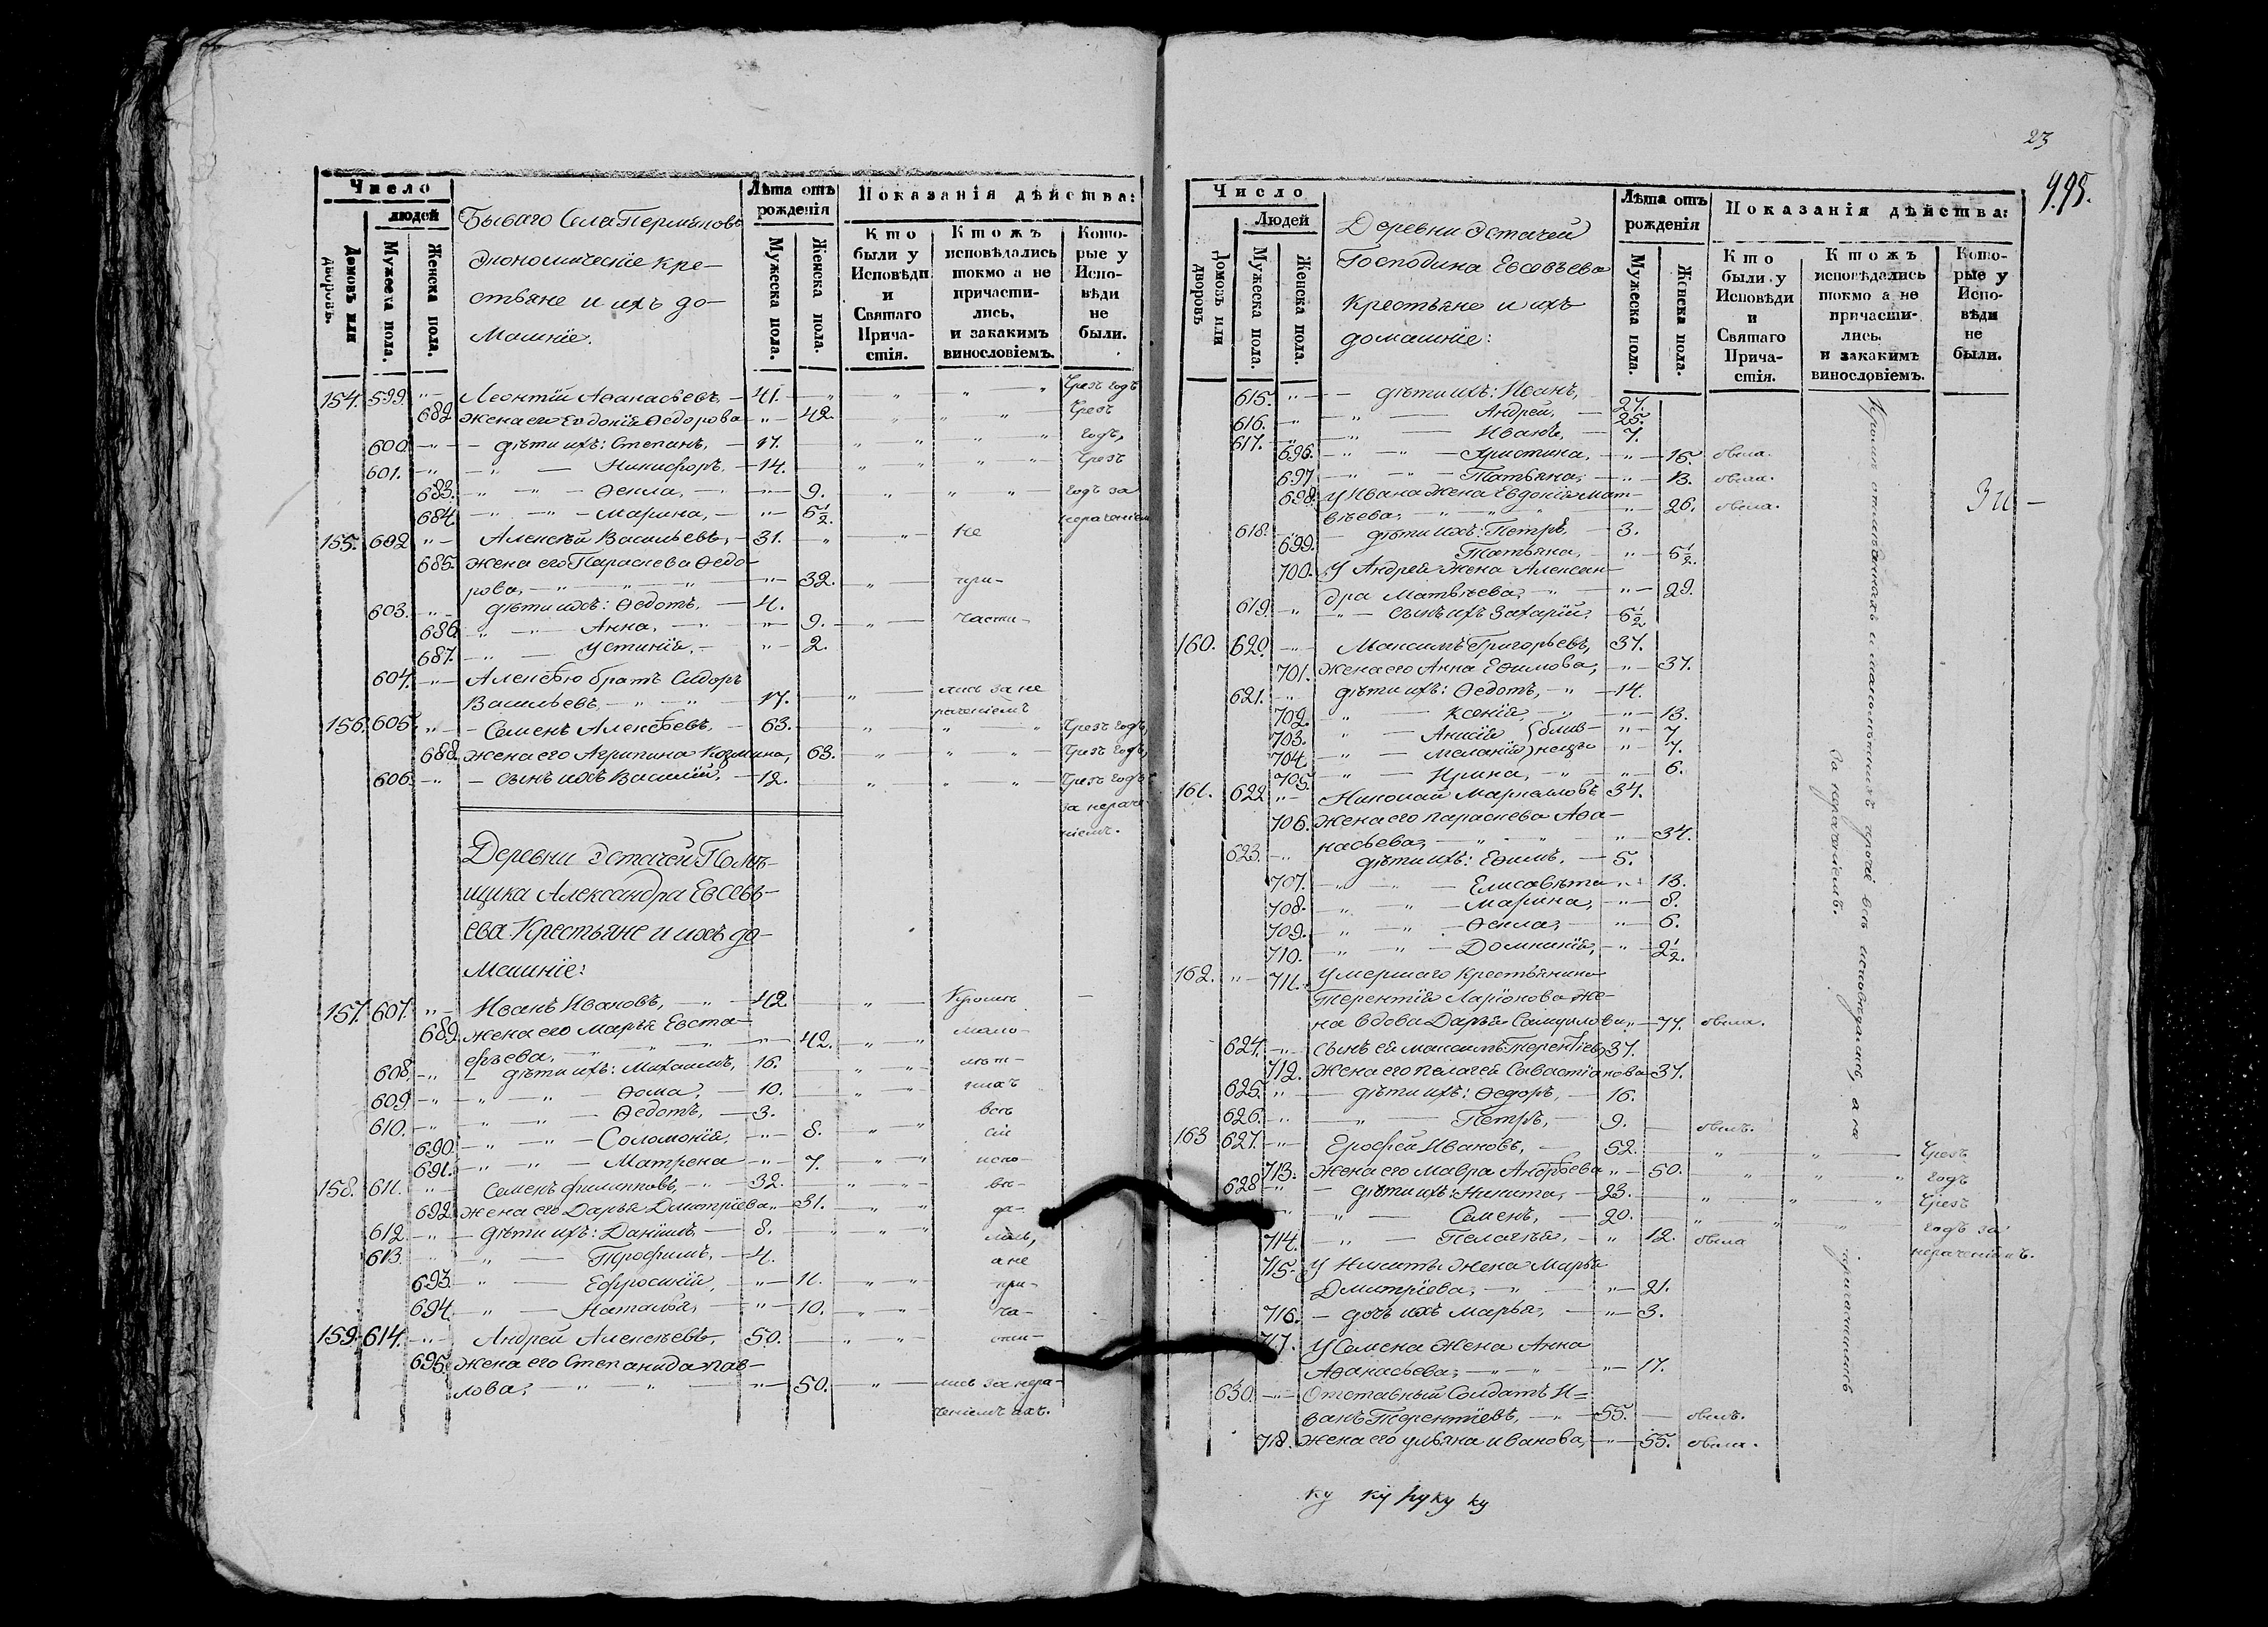 Число
людей
Домовъ или дворовъ.
Мужеска пола.
Женска пола.
Бываго Села Перміновъ
Экономическіе кре-
стьяне и ихъ до-
машніе.
Лѣта отъ рожденія
Мужеска пола.
Женска пола.
Показанія дѣйства:
Кто были у Исповѣди и Святаго Причастія.
Ктожъ исповѣдались токмо а не причастились, и закакимъ винословіемъ.
Которые у Исповѣди не были.
154. 599. „ Леонтій Аѳанасьевъ, 41. „ „ „ Чрезъ годъ
682. жена его Евдокія Ѳедорова „ 42. „ „ Чрезъ
600. „ дѣти ихъ: Степанъ, 17. „ „ „ годъ,
601. „ „ Никифоръ, 14. „ „ „ Чрезъ
683. „ „ Ѳекла, „ 9. „ „ „ годъ за
684. „ „ Марина, „ 6½. нераченіемъ
155. 602 „ Алексѣй Васильевъ, 31. „ „ не
685. жена его Параскева Ѳедо-
рова, „ „ „ 32. „ при-
603. „ дѣти ихъ: Ѳедотъ, 4.
686. „ „ Анна, „ 9. „ части-
687. „ Устинія, „ 2.
604. „ Алексѣю братъ Сидоръ
Васильевъ, „ „ 17. „ лись за не
раченіемъ
156. 605. „ Семенъ Алексѣевъ, 63. „ „ „ Чрезъ годъ,
688. жена его Агрипина Козмина, 63. „ „ „ Чрезъ годъ,
606. „ сынъ ихъ Василій, 12. „ „ „ Чрезъ годъ
за нераче-
ніемъ.
Деревни Эстачей Помѣ-
щика Александра Евсевь-
ева Крестьяне и ихъ до-
машніе:
157. 607. „ Иванъ Ивановъ, „ 42 „ Кромѣ
689. жена его Марья Евста-
фьева, „ „ „ „ 42. „ „ мало-
608. „ дѣти ихъ: Михаилъ, 16. „ „ лѣт-
609. „ „ „ Ѳома, 10. „ „ нихъ
610. „ „ „ Ѳедотъ, 3. всѣ
690. „ „ Соломонія, „ 8. „ „ сіи
691. „ „ Матрена „ 7. „ „ испо-
158. 611. „ Семенъ Филиповъ, „ 32. „ „ вѣ-
692. жена его Дарья Дмитріева „ 31. „ „ да-
612. „ дѣти ихъ: Даніилъ 8. „ „ „ лись,
613. „ „ Трофимъ, 4. а не
693. „ Ефросинія, „ 11. „ „ при-
694. „ Наталья, „ 10. „ „ ча-
159. 614. „ Андрей Алексѣевъ, 50. „ „ сти-
695. жена его Степанида пав-
лова, „ „ „ 50. „ лись за нера-
ченіемъ ихъ.
23
995.
Число
Людей
Домовъ или дворовъ
Мужеска пола.
Женска пола.
Деревни Эстачей
Господина Евсевьева
Крестьяне и ихъ
домашніе:
Лѣта отъ рожденія
Мужеска пола.
Женска пола.
Показанія дѣйства:
Кто были у Исповѣди и Святаго Причастія.
Ктожъ исповѣдались токмо а не причастились. и закакимъ винословіемъ.
Которые у Исповѣди не были.
615. „ дѣти ихъ: Иванъ, 27.
616. „ „ Андрей, 25.
617. „ „ Иванъ, 7.
696. „ „ Христина, „ 15. была.
697. „ „ Татьяна, „ 13. была.
698. У Ивана жена Евдокія Мат-
вѣева, „ „ „ 26. была.
618. дѣти ихъ: Петръ, 3.
699. Татьяна, „ 5½.
700. У Андрея жена Алексан-
дра Матвѣева, „ „ 29.
619. „ сынъ ихъ Захарій, 5½
160. 620. „ Максимъ Григорьевъ, 37.
701. жена его Анна Ефимова, „ 37.
621. „ дѣти ихъ: Ѳедотъ, „ 14.
702. „ Ксенія, „ „ 13.
703. „ Анисія близ- „ 7
704. „ Меланія нецы „ 7.
705. „ Ирина, „ „ 6.
161. 622 „ Николай Маркеловъ 34.
706. жена его параскева Аѳа-
насьева, „ „ „ 34.
623. „ дѣти ихъ: Ефимъ, 5.
707. „ „ Елисавета „ 13.
708. „ „ Марина, „ 8.
709. „ „ Ѳекла, „ 6.
710. „ „ Домникія, „ 2½.
162. „ 711. Умершаго крестьянина
Терентія Ларіонова же-
на вдова Дарья Самуилова „ 77. была.
624. „ сынъ ея максимъ терентіев, 37.
712. жена его пелагея Савастіанова 37.
625. „ дѣти ихъ: Ѳедоръ, 16.
626. „ „ Петръ, 9. былъ.
163 627. „ Ерофей Ивановъ, 52. „ „ Чрезъ
713. жена его Мавра Андрѣева „ 50. „ „ „ годъ
628 „ дѣти ихъ: Никита, 23. „ „ „ Чрезъ
„ „ Семенъ, 20. „ „ „ годъ за
714. „ Пелагея, „ 12. была нераченіемъ.
715. У Никиты жена Марья
Дмитріева, „ „ 21.
716. дочь ихъ Марья, „ 3.
717. У Семена жена Анна
Аѳанасьева, „ „ „ 17.
630. „ Отставный Солдатъ И-
ванъ Терентіевъ, „ 55. былъ.
718. жена его ульяна иванова, „ 55. была.
Кромѣ отмѣченныхъ и малолѣтнихъ прочіи всѣ исповѣдались, а не причастились
За нераченіемъ.
ку ку руку ку